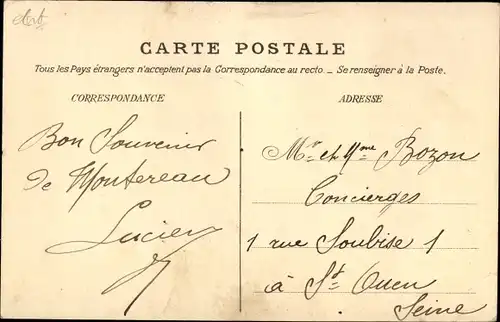 CARTE POSTALE
Tous les Pays étrangers n'acceptent pas la Correspondance au recto. — Se renseigner à la Poste.
CORRESPONDANCE
ADRESSE
Bon Souvenir
de Montereau
Lucien
Mr et Mme Bozon
Concierges
1 rue Soubise 1
à St Ouen
Seine